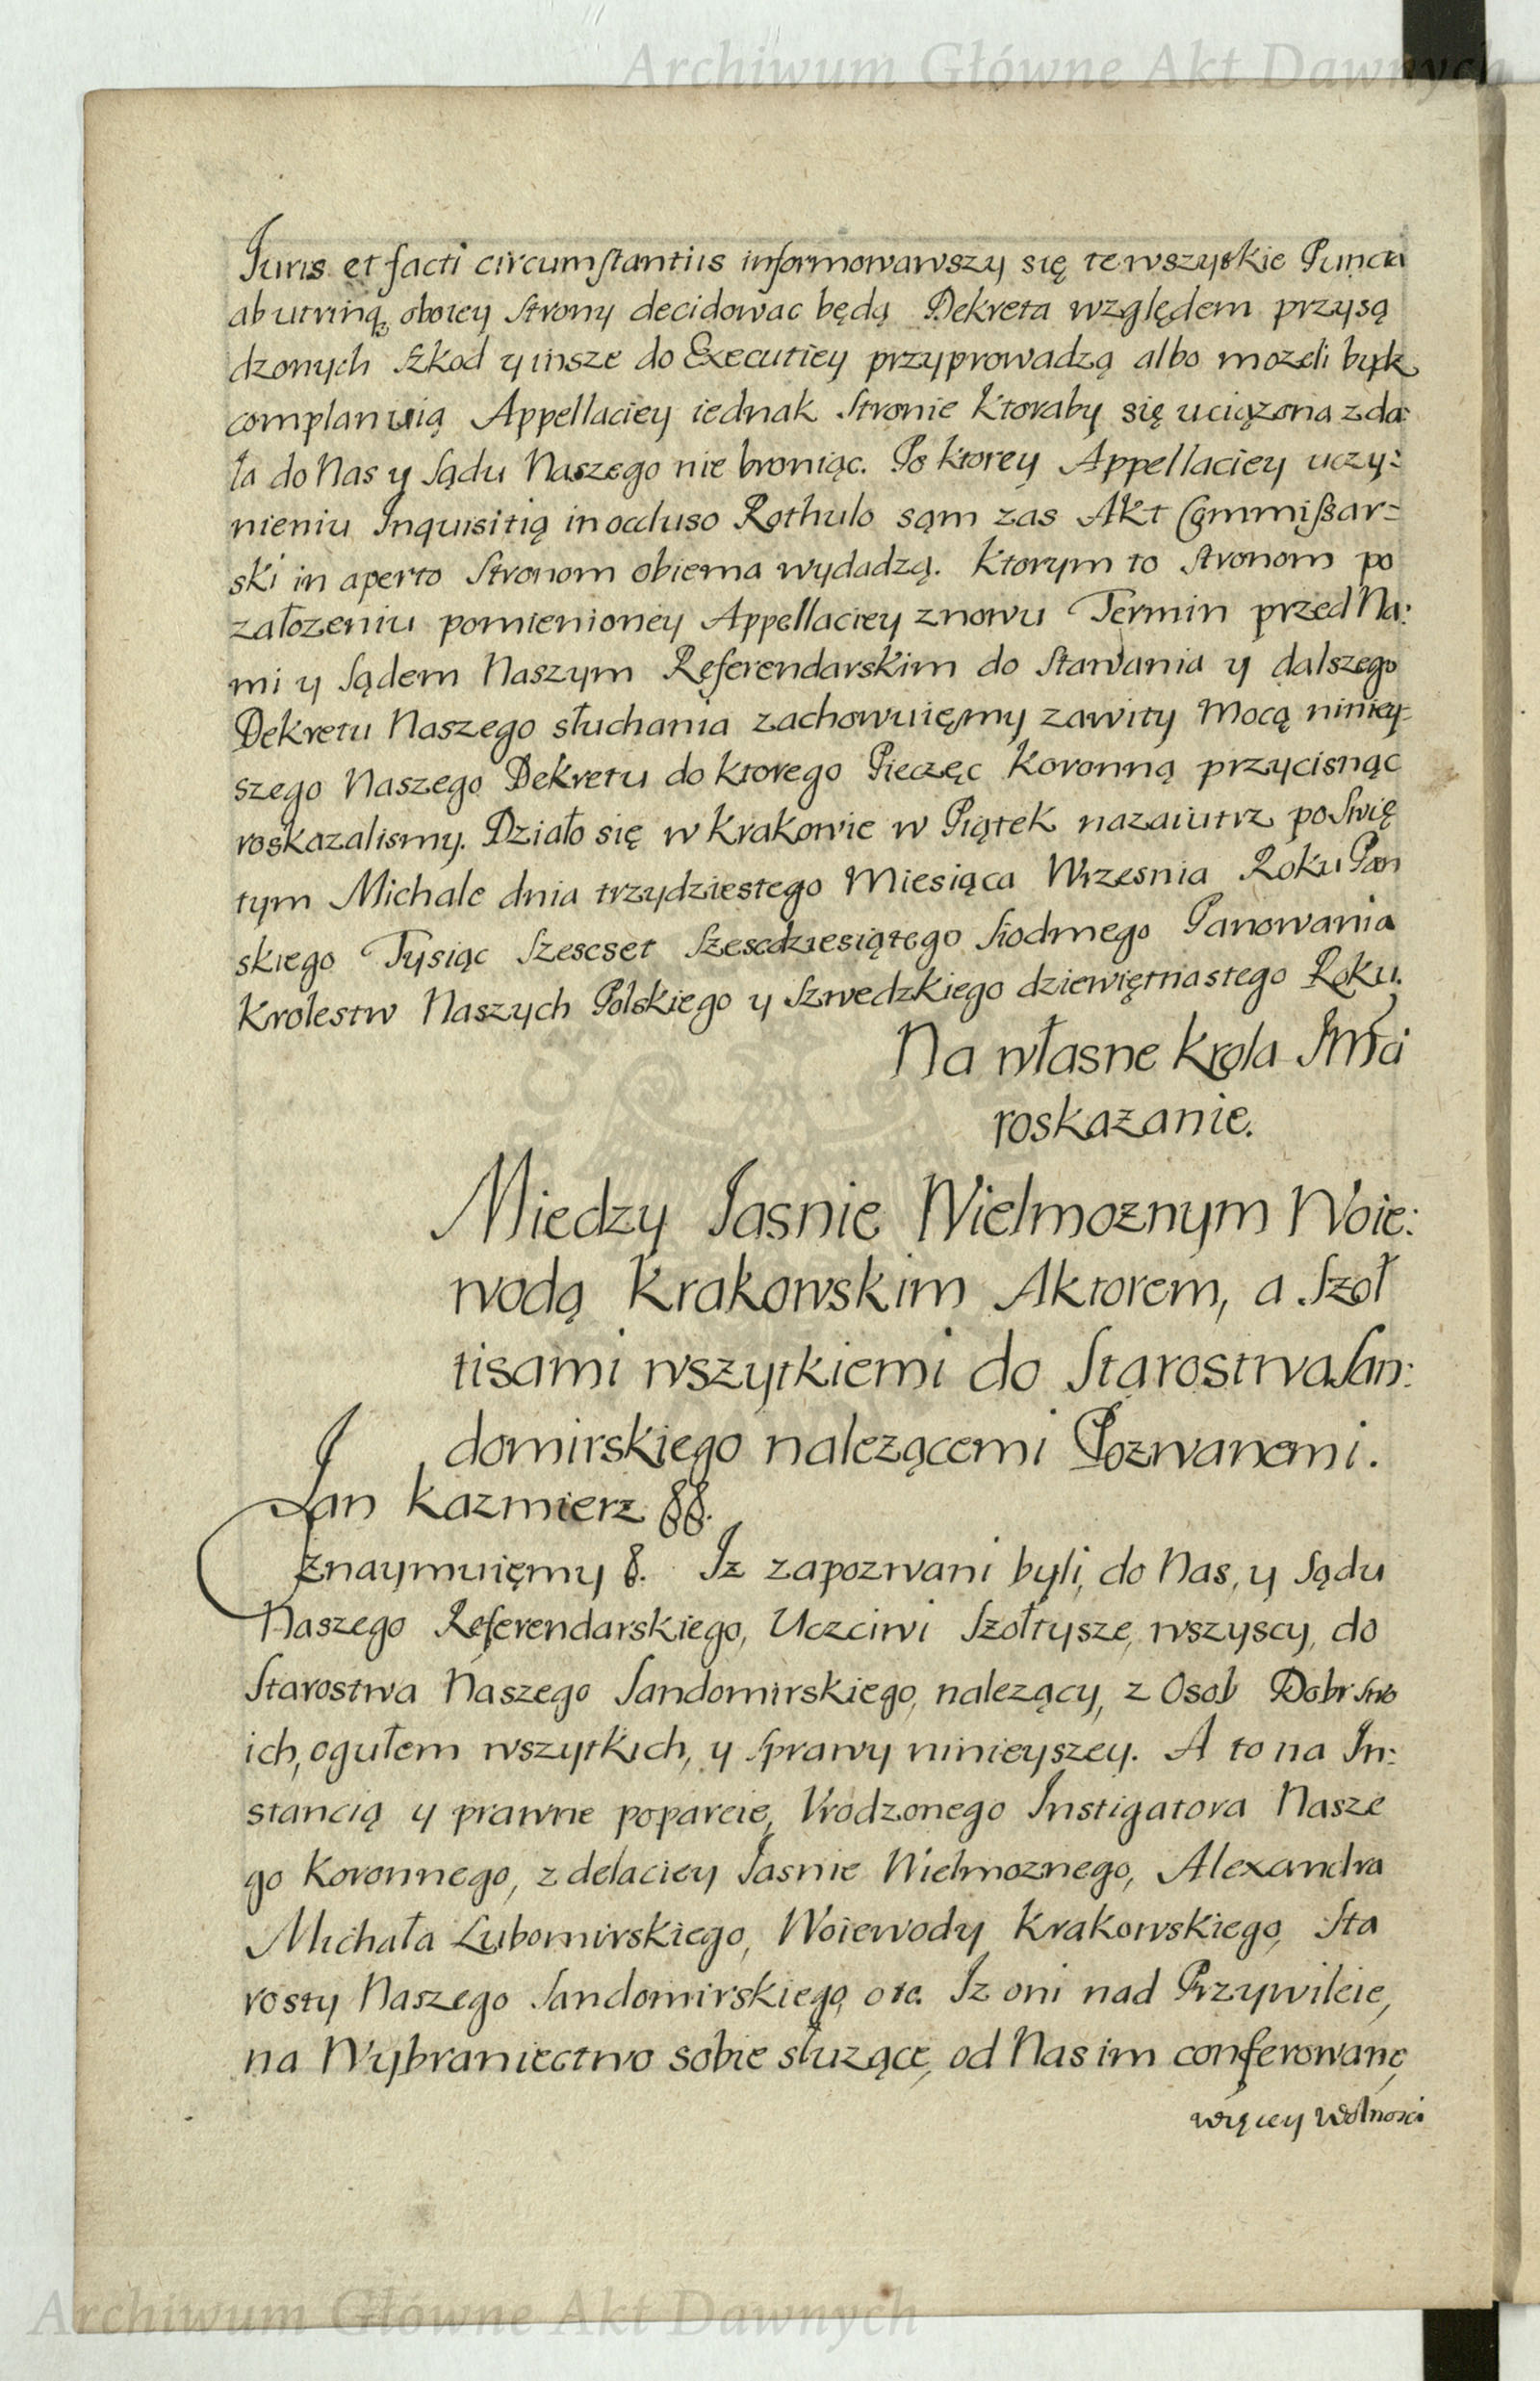 Archiwum Główne Akt Dawnych
Juris et facti circumstantiis informowawszy się te wszystkie Puncta
ab utrinq, oboiey Strony decidowac będą Dekreta względem przysą
dzonych Szkod y insze do Executiey przyprowadzą albo mozeli bydz
complanuią Appellaciey iednak Stronie ktoraby się uciązona zda:
ła do Nas y Sądu Naszego nie broniąc. Po ktorey Appellaciey uczy:
nieniu Inquisitią in occluso Rothulo sąm zas Akt Commissar=
ski in aperto Stronom obiema wydadzą. Ktorym to stronom po
załozeniu pomienioney Appellaciey znowu Termin przed Na:
mi y Sądem Naszym Referendarskim do Stawania y dalszego
Dekretu Naszego słuchania zachowuięmy zawity Mocą niniey=
szego Naszego Dekretu do ktorego Pieczęc Koronną przycisnąc
roskazalismy. Działo się w Krakowie w Piątek nazaiutrz po Swię
tym Michale dnia trzydziestego Miesiąca Wrzesnia Roku Pan
skiego Tysiąc Szescset Szescdziesiątego Siodmego Panowania
Krolestw Naszych Polskiego y Szwedzkiego dziewiętnastego Roku.
Na własne Krola JMci
roskazanie.
Miedzy Jasnie Wielmoznym Woie:
wodą Krakowskim Aktorem, a Szoł
tisami wszytkiemi do Starostwa San:
domirskiego nalezącemi Pozwanemi.
Jan Kazmierz §§.
Oznaymuięmy §. Iz zapozwani byli, do Nas, y Sądu
Naszego Referendarskiego, Uczciwi Szołtysze, wszyscy, do
Starostwa Naszego Sandomirskiego, nalezący, z Osob Dobr Swo
ich, ogułem wszytkich, y sprawy ninieyszey. A to na In:
stancią y prawne poparcie, Vrodzonego Instigatora Nasze
go Koronnego, z delaciey Jasnie Wielmoznego, Alexandra
Michała Lubomirskiego, Woiewody Krakowskiego, Sta
rosty Naszego Sandomirskiego, otc. Iz oni nad Przywileie,
na Wybraniectwo sobie słuzące, od Nas im conferowane,
więcey Wolnosci
Archiwum Główne Akt Dawnych